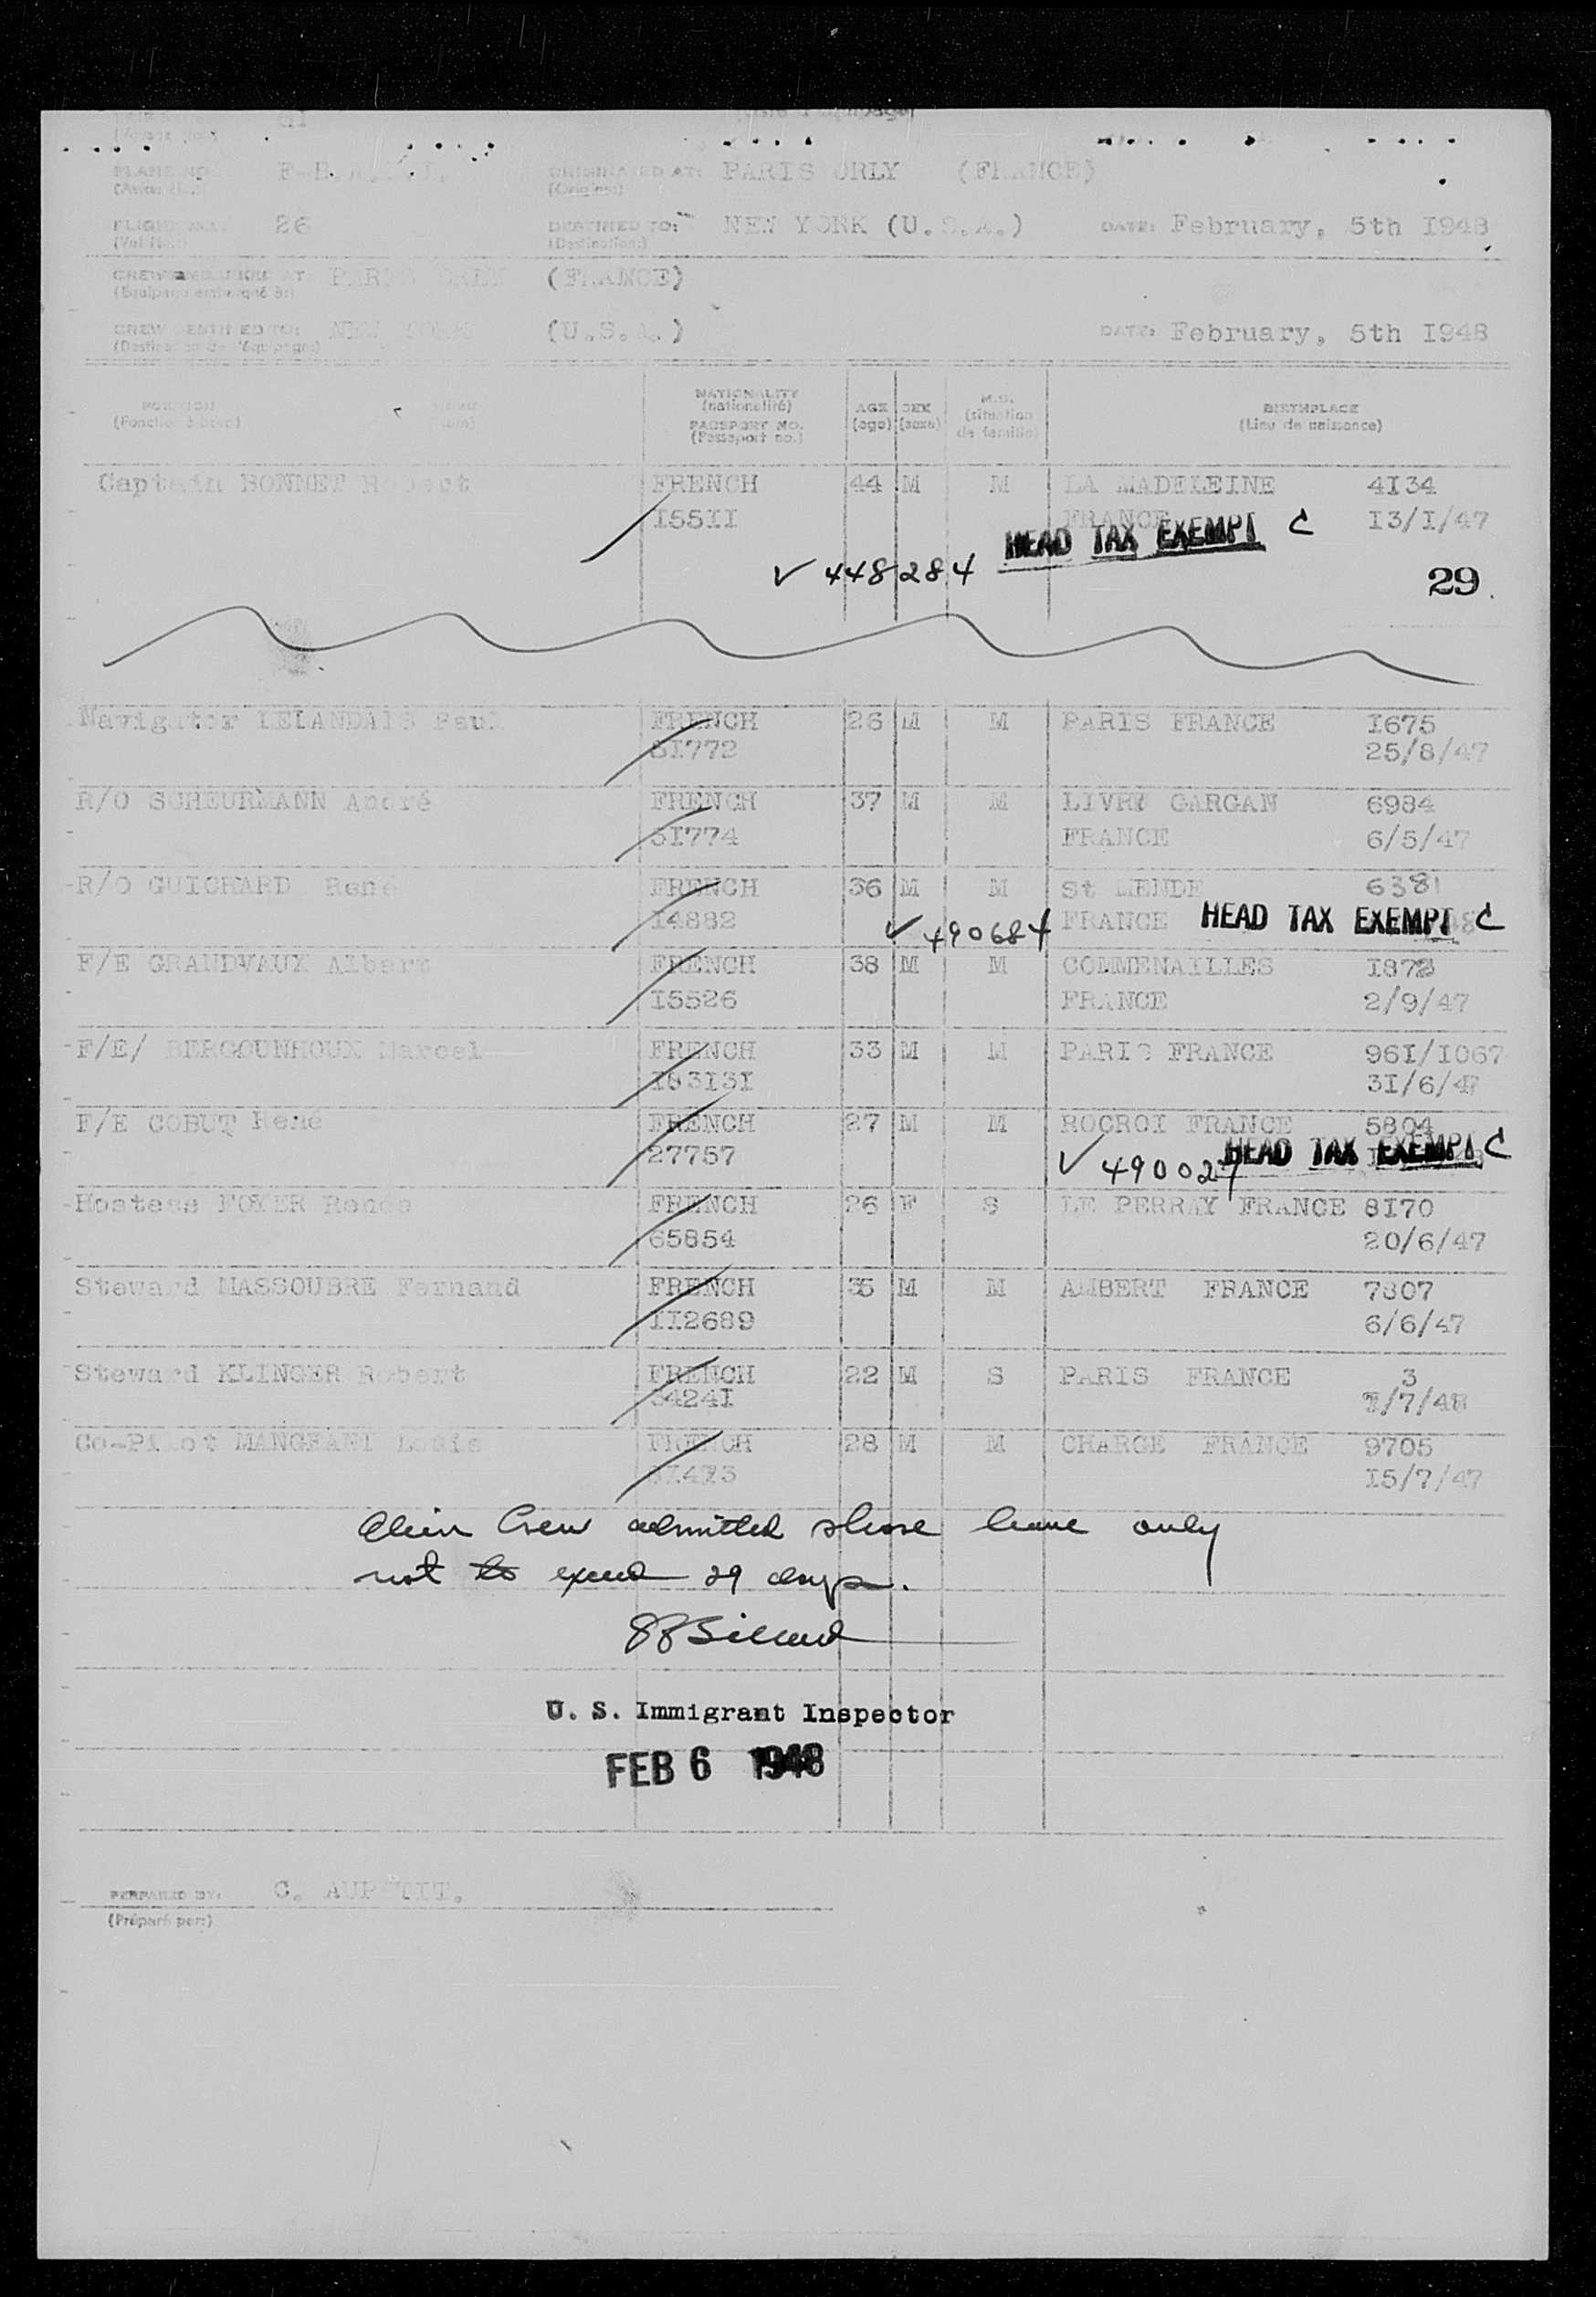 (Voyage No.)
PLANE NO: ORIGINATED AT: PARIS ORLY (FRANCE)
(Avion No.) (Origine:)
FLIGHT 26 DESTINED TO: NEW YORK (U.S.A.) DATE: February, 5th I948
(Vol No.) (Destination:)
CREW EMBARKED AT PARIS ORLY (FRANCE)
(Equipage embarqué à:)
CREW DESTINED TO: NEW YORK (U.S.A.) DATE: February, 5th I948
(Destination de l'équipage)
POSITION NAME NATIONALITY AGE SEX M.S. BIRTHPLACE
(Fonction à bord) (Nom) (nationalité) (age) (sexe) (situation de famille) (Lieu de naissance)
PASSPORT NO.
(Passeport no.)
Captain BONNET Robert FRENCH 44 M M LA MADELEINE 4I34
I55II FRANCE I3/I/47
HEAD TAX EXEMPT C
✓ 448284
29
Navigator LELANDAIS Paul FRENCH 26 M M PARIS FRANCE I675
3I772 25/8/47
R/O SCHEURMANN André FRENCH 37 M M LIVRY GARGAN 6984
3I774 FRANCE 6/5/47
R/O GUICHARD René FRENCH 36 M M St MENDE 638I
I4882 ✓ 490684 FRANCE HEAD TAX EXEMPT C
F/E GRANDVAUX Albert FRENCH 38 M M COMMENAILLES
I5526 FRANCE 2/9/47
F/E/ BERGOUNHOUX Marcel FRENCH 33 M M PARIS FRANCE 96I/I067
I83I3I 3I/6/47
F/E COBUT René FRENCH 27 M M ROCROI FRANCE 5804
27757 ✓ 490027 HEAD TAX EXEMPT C
Hostess FOYER Renée FRENCH 26 F S LE PERRAY FRANCE 8I70
65854 20/6/47
Steward MASSOUBRE Fernand FRENCH 35 M M AMBERT FRANCE 7807
II2689 6/6/47
Steward KLINGER Robert FRENCH 22 M S PARIS FRANCE 3
3424I
Co-Pilot MANGEANT Louis FRENCH 28 M M CHARGE FRANCE 9705
I5/7/47
Alien Crew admitted shore leave only
not to exceed 29 days.
U. S. Immigrant Inspector
FEB 6 1948
PERPARED BY: C. AUPETIT.
(Préparé par:)